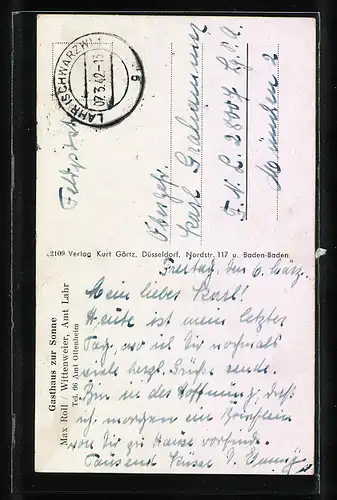 LAHR (SCHWARZW)
07.3.42-13
g
Feldpost
Obergefr.
Karl
F. N. L 28007 Lg. P. A.
München 2
52109 Verlag Kurt Görtz, Düsseldorf, Nordstr. 117 u. Baden-Baden
Gasthaus zur Sonne
Max Roll / Wittenweier, Amt Lahr
Tel. 66 Amt Ottenheim
Freitag, den 6. März.
Mein liebes Karl!
Heute ist mein letzter
Tag, wo ich Dir nochmals
viele herzl. Grüße sende.
Bin in der Hoffnung, daß
ich morgen ein Brieflein
von Dir zu Hause vorfinde.
Tausend Küsse D.